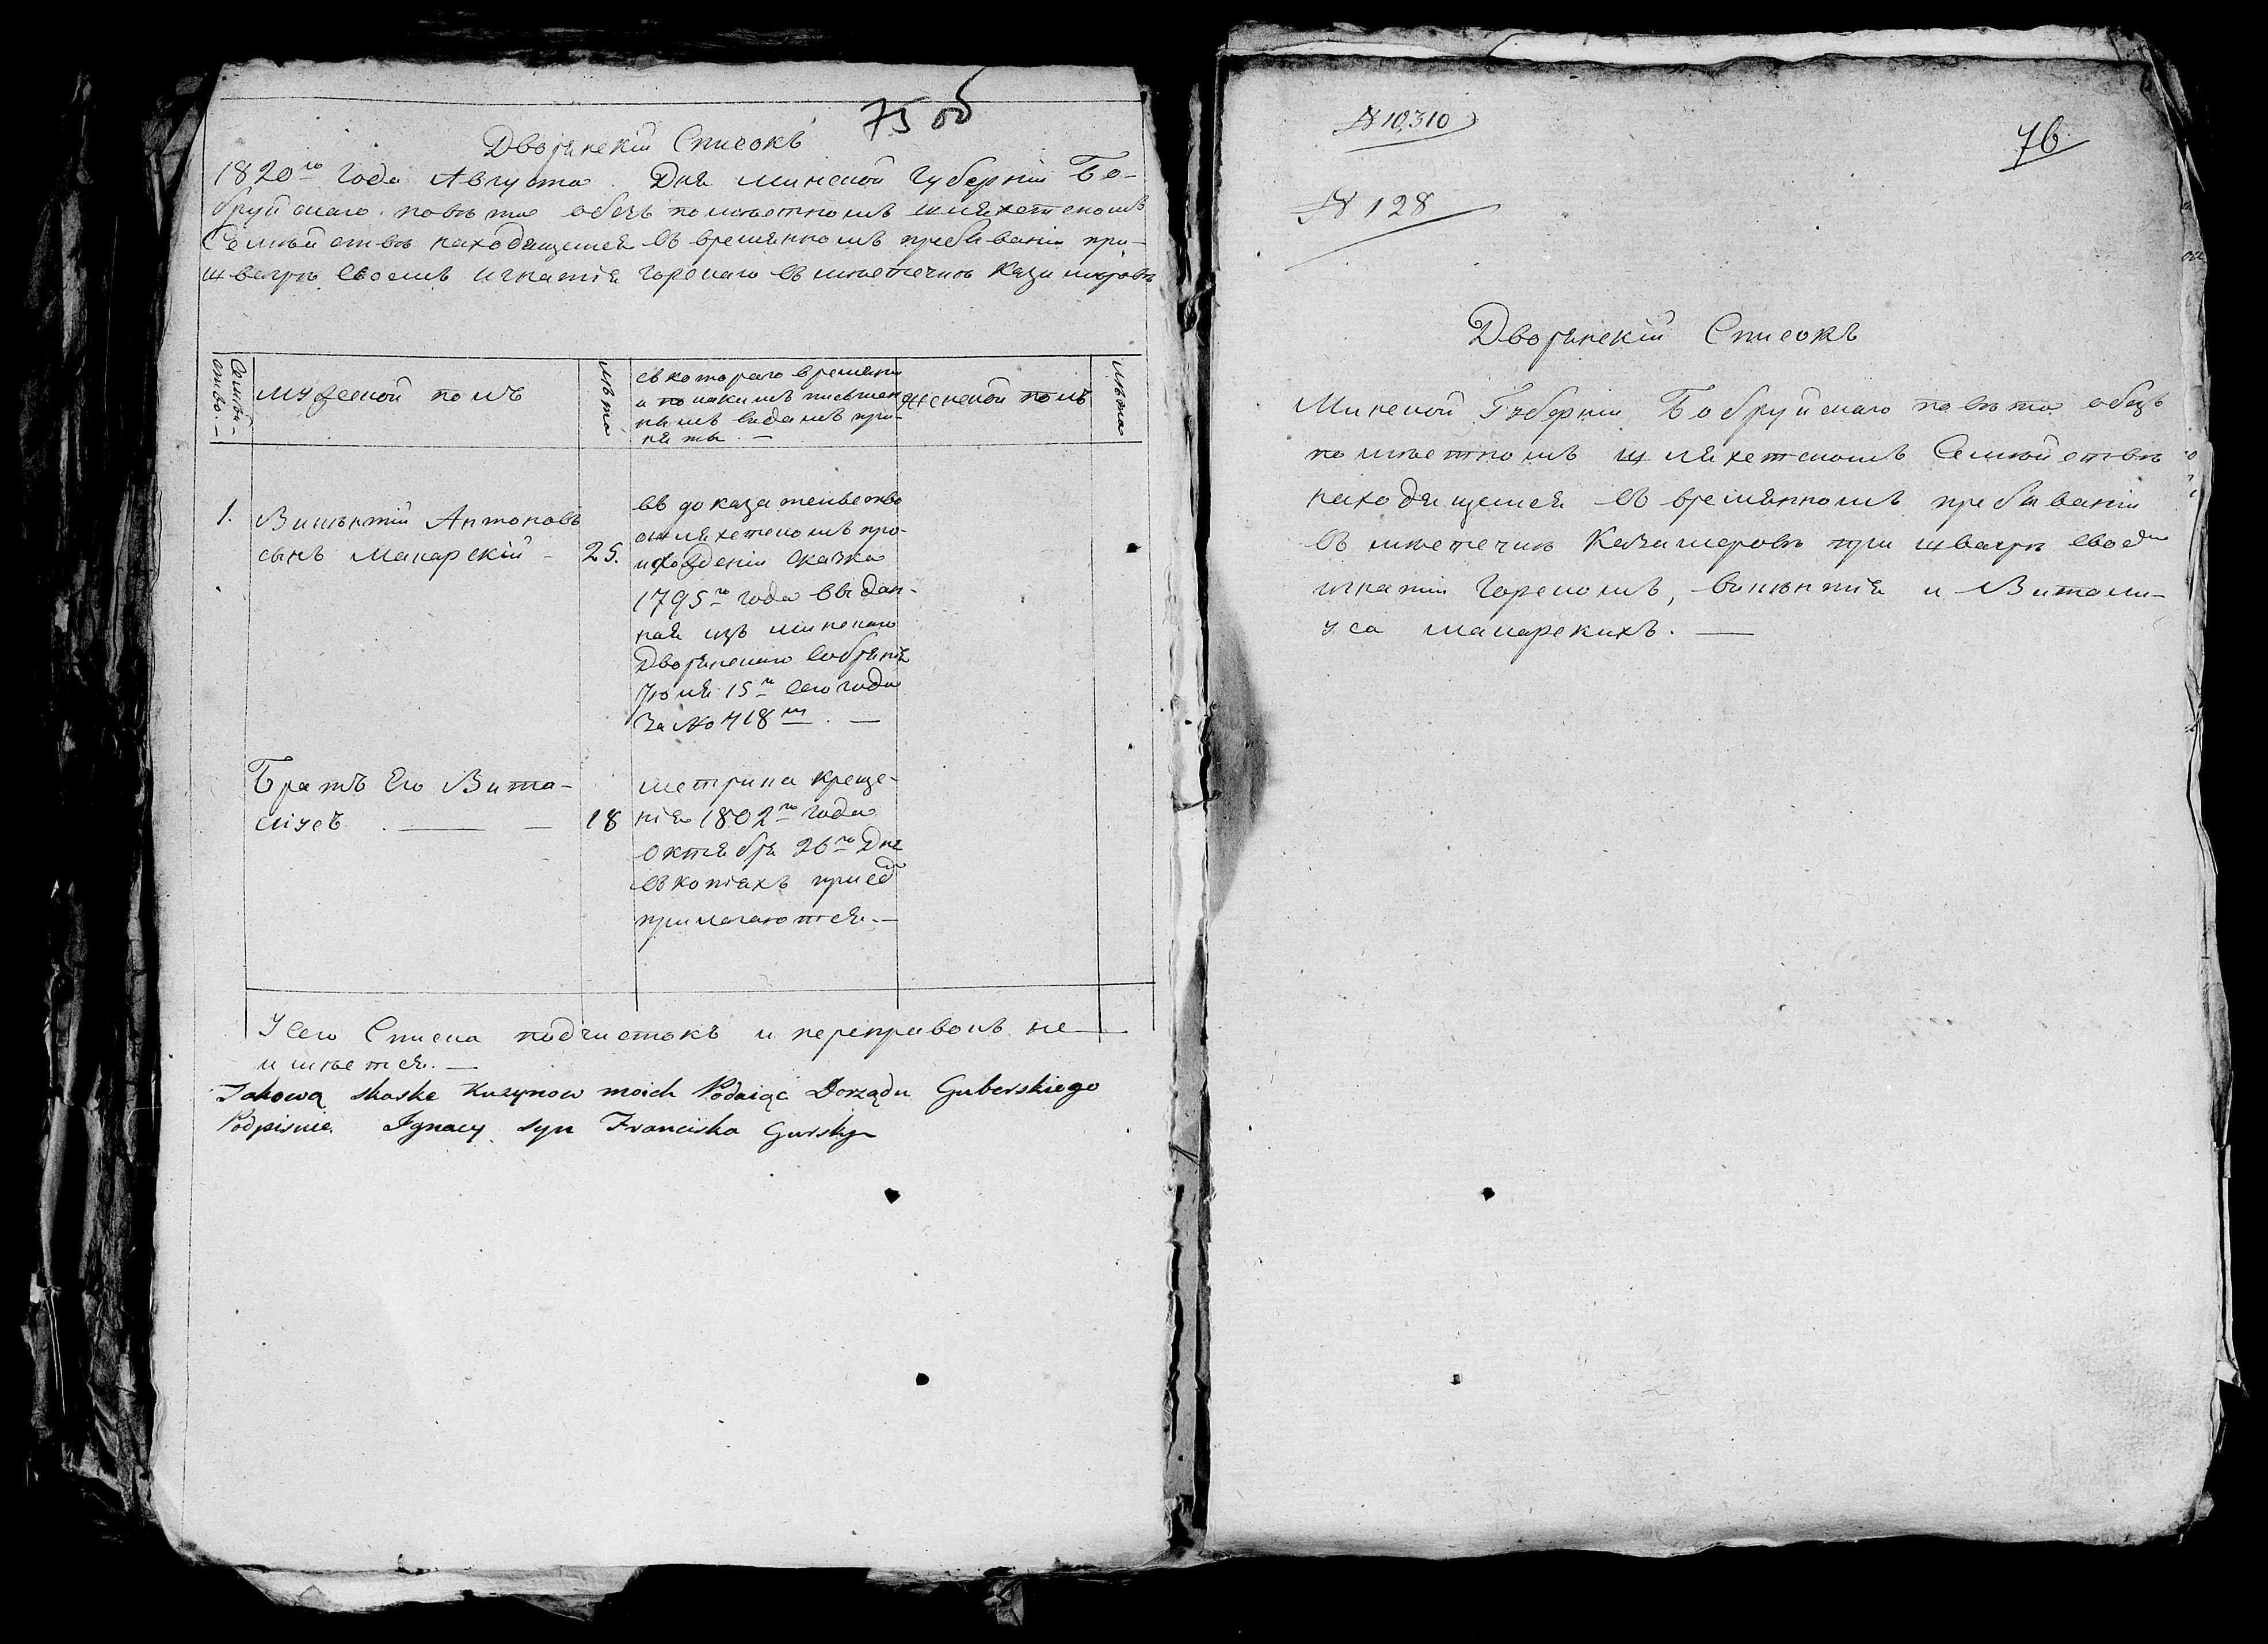 75 об
Дворянскій Списокъ
1820го года Августа Дня минской губерніи Бо-
бруйскаго повѣта объ помѣстномъ шляхетскомъ
Семѣйствѣ находящемся въ времянномъ пребываніи при
швагрѣ своемъ Игнатія Горскаго въ мѣстечкѣ Казимировѣ
Семѣй-
ство. —
мужеской полъ
лѣта
съ котораго времяни
и по какимъ письмен
нымъ видамъ при-
няты. —
женской полъ
лѣта
1. Винцентій Антоновъ
сынъ Макарскій - 25.
въ доказательство
о шляхетскомъ про-
изхожденіи сказка
1795го года выдан-
ная изъ минскаго
Дворянскаго Собранія
Іюля 15го сего года
за No 418м. —
Братъ Его Вита-
лиусъ . — — 18
метрика креще-
нія 1802го года
Октября 26го Дня
въ копіахъ при сд
прилагаются. —
У сего Списка подчистокъ и переправокъ не
имѣется. —
Takową skaskę Kuzynow moich Podaiąc Dorządu Guberskiego
Podpisuie Ignacy syn Franciszka Gurskyi
№ 10310
76
№ 128
Дворянскій Списокъ
Минской Губерніи Бобруйскаго повѣта объ
помѣстномъ шляхетскомъ Семѣйствѣ
находящемся въ времянномъ пребываніи
въ мѣстечкѣ Казимеровѣ при швагрѣ своем
игнатіи Горскомъ, винцентія и Витали-
уса макарскихъ. —